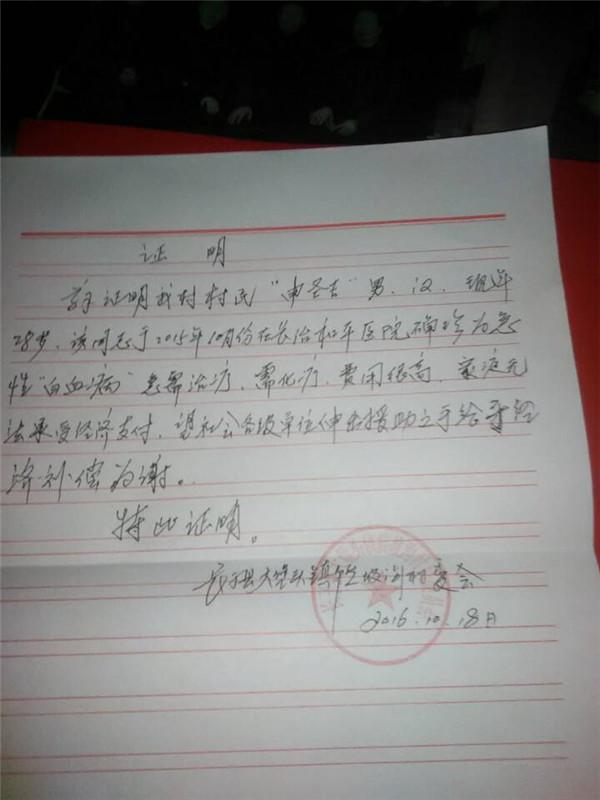 证 明
兹证明我村村民"申圣吉"男、汉、现年
28岁、该同志于2015年10月份在长治和平医院确珍为急
性"白血病"急需治疗、需化疗、费用很高、家庭无
法承受经济支付、望社会各级单位伸出援助之手给予经
济补偿为谢。
特此证明。
长子县大堡头镇 坡 村委会
2016.10.18日